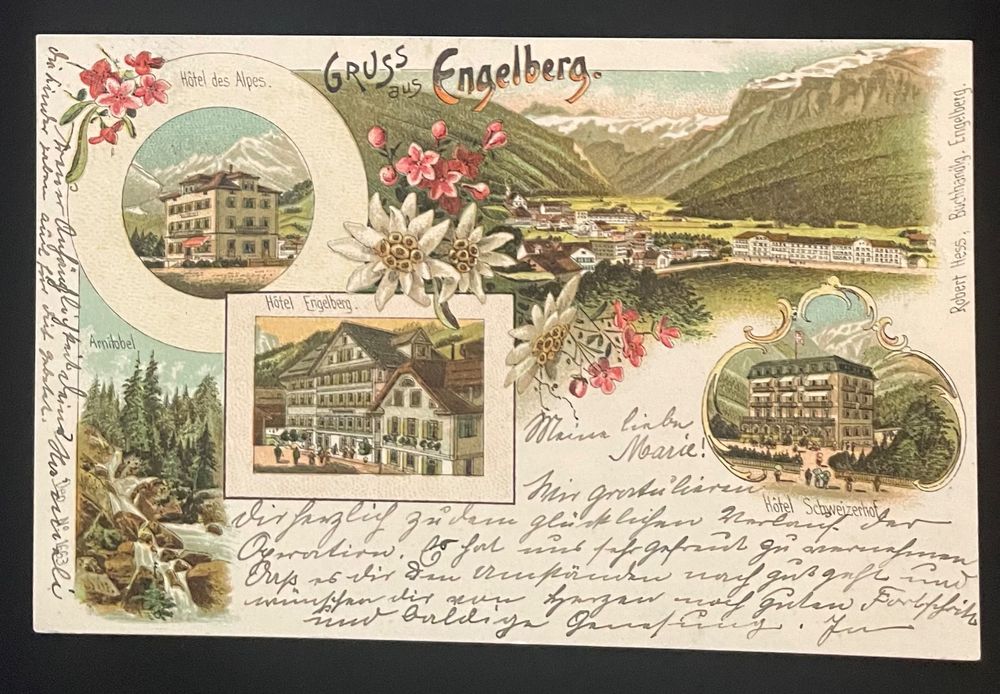 Gruss aus Engelberg.
Hôtel des Alpes.
Hôtel Engelberg.
Arnitobel
Hôtel Schweizerhof.
Robert Hess, Buchhandlg. Engelberg.
Meine liebe
Marie!
Wir gratulieren
dir herzlich zu dem glücklichen Verlauf der
Operation. Es hat uns sehr gefreut zu vernehmen
daß es dir den Umständen nach gut geht und
wünschen dir von Herzen noch guten Fortschritt
und baldige Genesung. In
treuer Anhänglichkeit deine
die Kinder haben auch für dich gebetet.